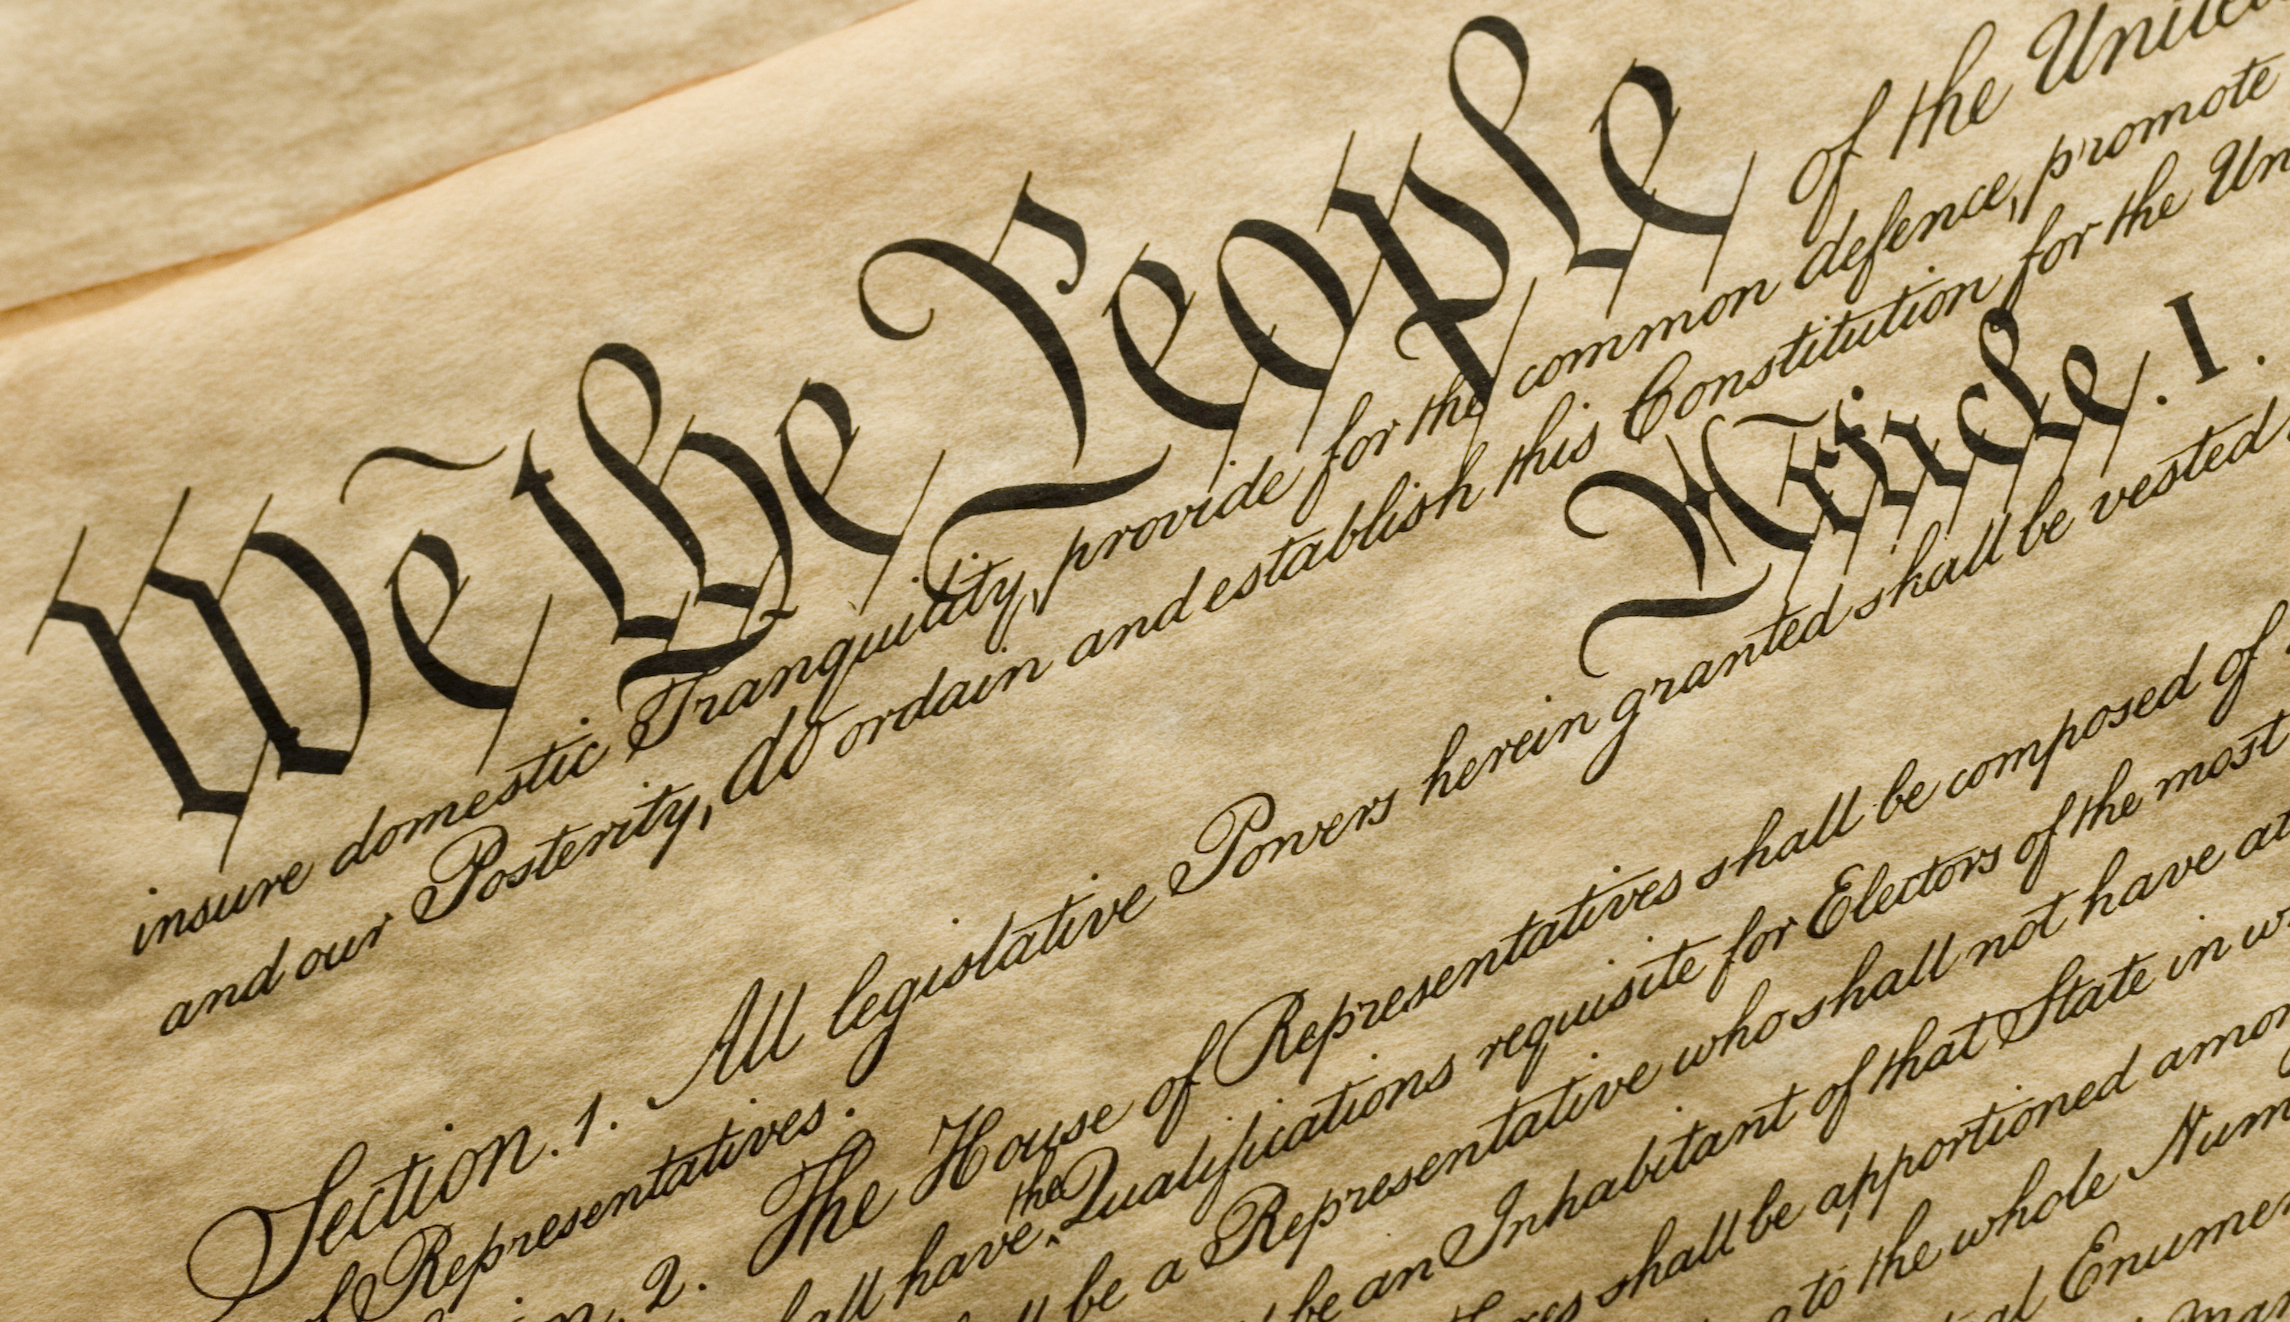 We the People of the United
insure domestic Tranquility, provide for the common defence, promote
and our Posterity, do ordain and establish this Constitution for the Un
Article. I.
Section. 1. All legislative Powers herein granted shall be vested
of Representatives.
2. The House of Representatives shall be composed of
have the Qualifications requisite for Electors of the most
be a Representative who shall not have
be an Inhabitant of that State in
shall be apportioned
to the whole Num
Enumer